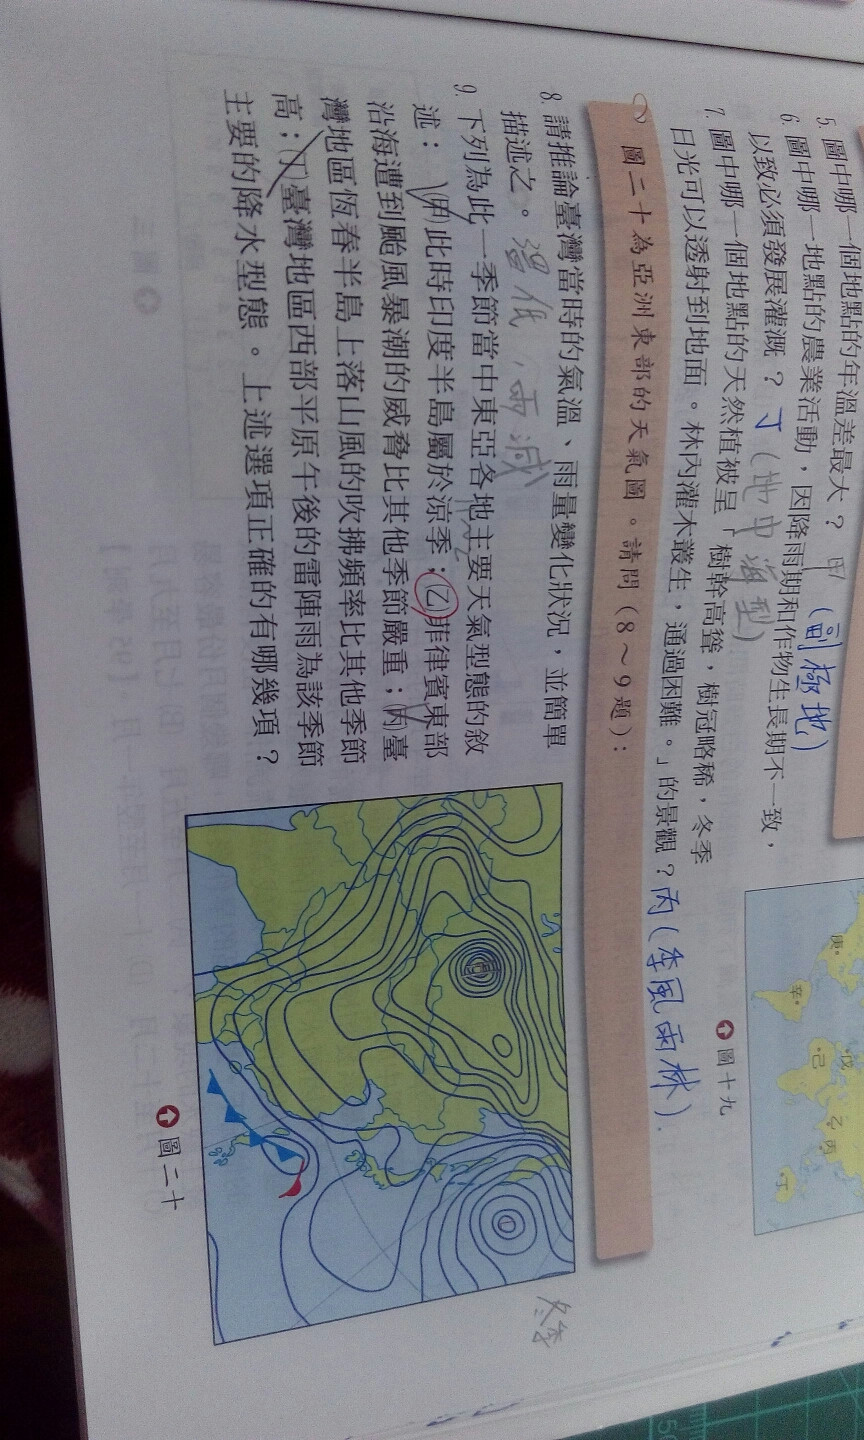 5. 圖中哪一個地點的年溫差最大？甲(副極地)
6. 圖中哪一地點的農業活動，因降雨期和作物生長期不一致，
以致必須發展灌溉？丁(地中海型)
7. 圖中哪一個地點的天然植被呈「樹幹高聳，樹冠略稀，冬季
日光可以透射到地面。林內灌木叢生，通過困難。」的景觀？丙(季風雨林).
庚
辛
己
戊
乙
丙
丁
圖十九
圖二十為亞洲東部的天氣圖。請問（8～9題）：
8. 請推論臺灣當時的氣溫、雨量變化狀況，並簡單
描述之。溫低、雨減
9. 下列為此一季節當中東亞各地主要天氣型態的敘
述：(甲)此時印度半島屬於涼季；(乙)菲律賓東部
沿海遭到颱風暴潮的威脅比其他季節嚴重；(丙)臺
灣地區恆春半島上落山風的吹拂頻率比其他季節
高；(丁)臺灣地區西部平原午後的雷陣雨為該季節
主要的降水型態。上述選項正確的有哪幾項？
冬季
圖二十